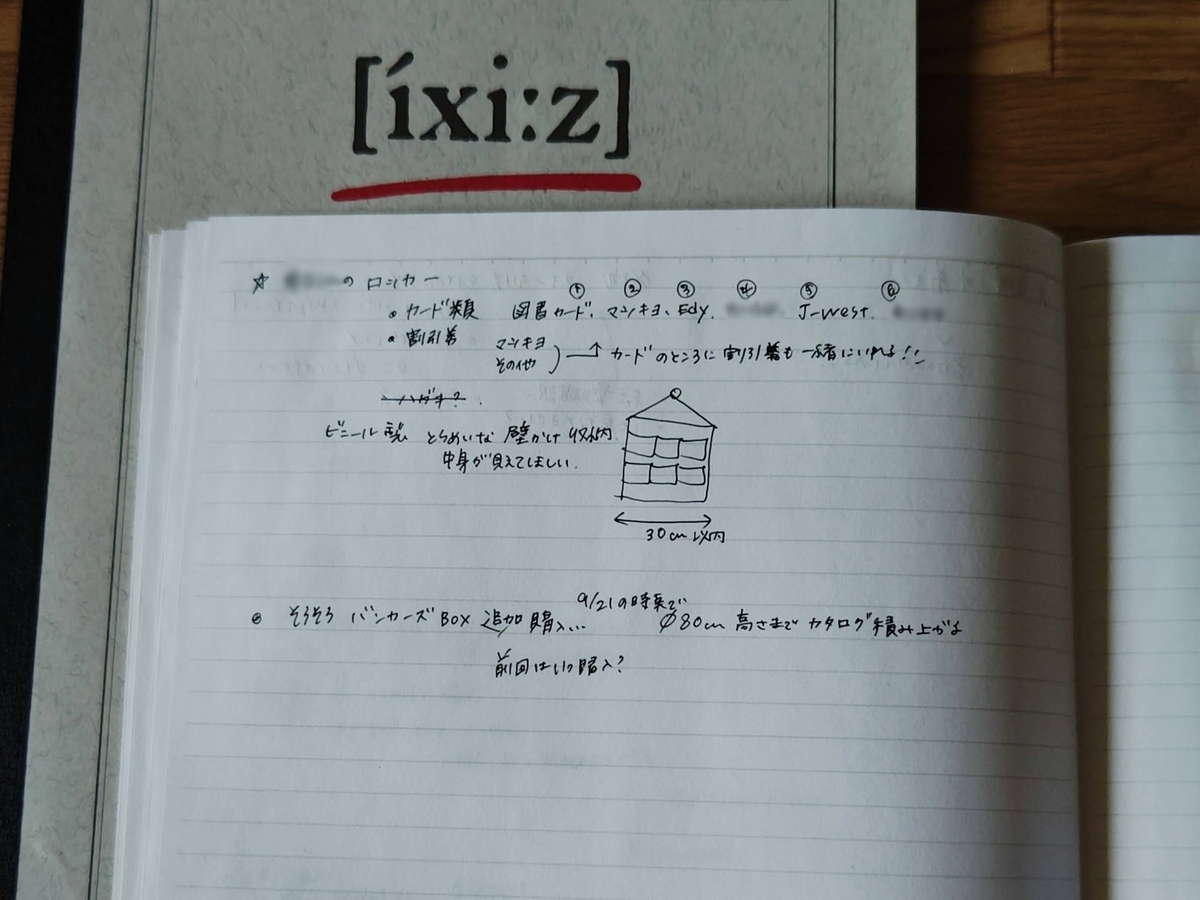 [íxi:z]
☆ のロッカー
① ② ③ ④ ⑤ ⑥
• カード類 図書カード、マツキヨ、Edy. J-West.
• 割引券 マツキヨ
その他 → カードのところに割引券も一緒にいれる!!
ハガキ?
ビニール製 とうめいな 壁かけ収納
中身が見えてほしい.
30cm以内
9/21の時点で
• そろそろ バンカーズBOX 追加購入… 80cm 高さまで カタログ積み上がる
前回はいつ購入?